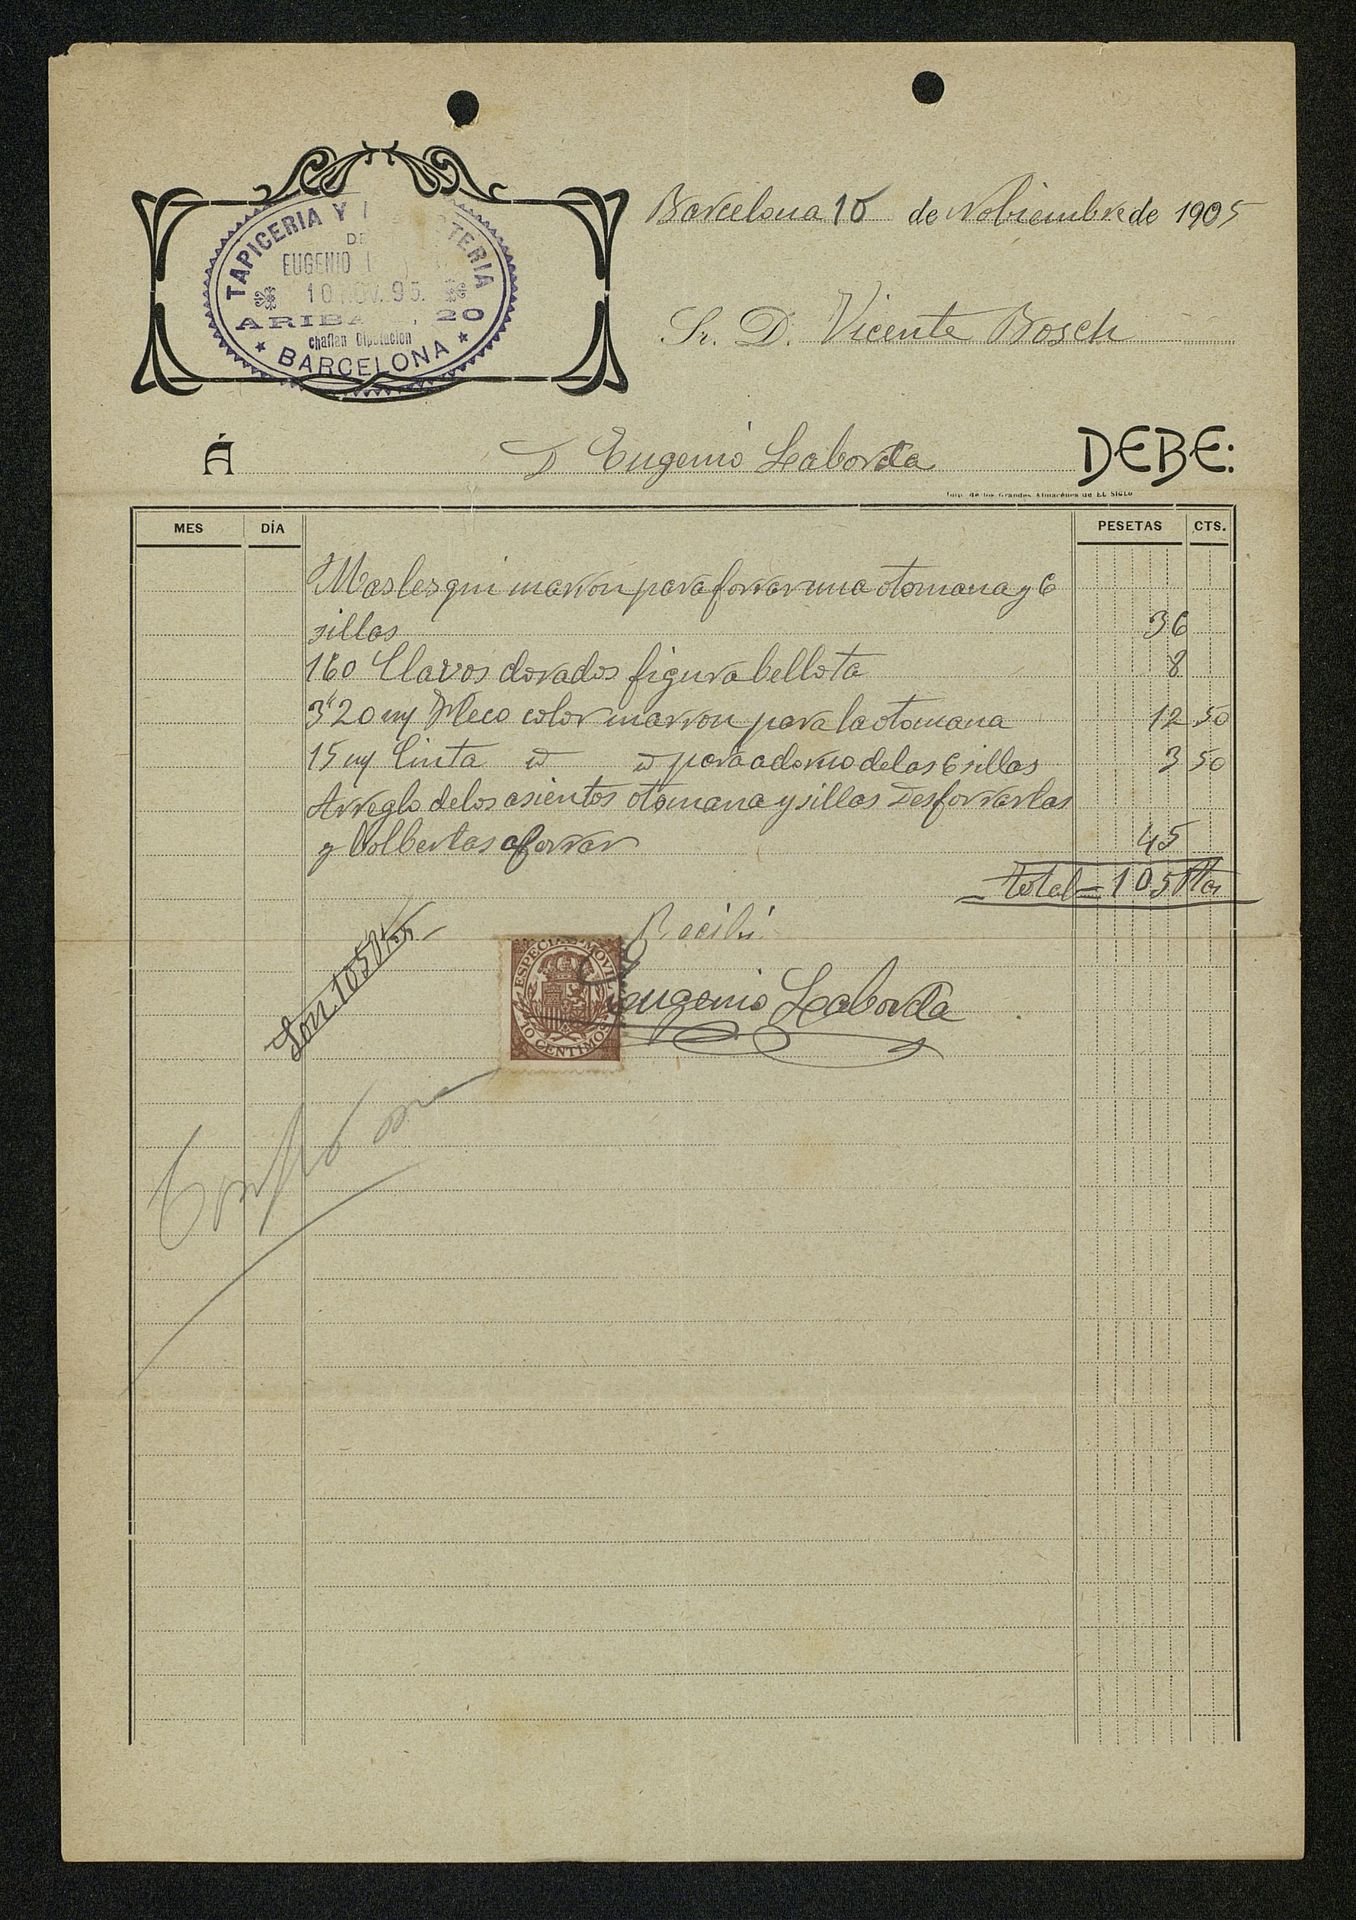 TAPICERIA Y
DE
EUGENIO
10 NOV. 95.
20
chaflan Diputacion
BARCELONA
Barcelona 10 de Nobiembre de 1905
Sr. D. Vicente Bosch
Á D Eugenio Laborda DEBE:
Imp. de los Grandes Almacénes de EL SIGLO
MES DÍA PESETAS CTS.
marron para forrar una otomana y 6
sillas 36
160 Clavos dorados figura bellota 8
3'20 m color marron para la otomana 12 50
15 m Cinta id id para adorno de las 6 sillas 3 50
Arreglo de los asientos otomana y sillas Desforrarlas
y Bolberlas aforrar 45
total = 105 Ptas
Recibi
Son 105 Ptas
ESPECIAL MOVIL
10 CENTIMOS
Eugenio Laborda
Conforme